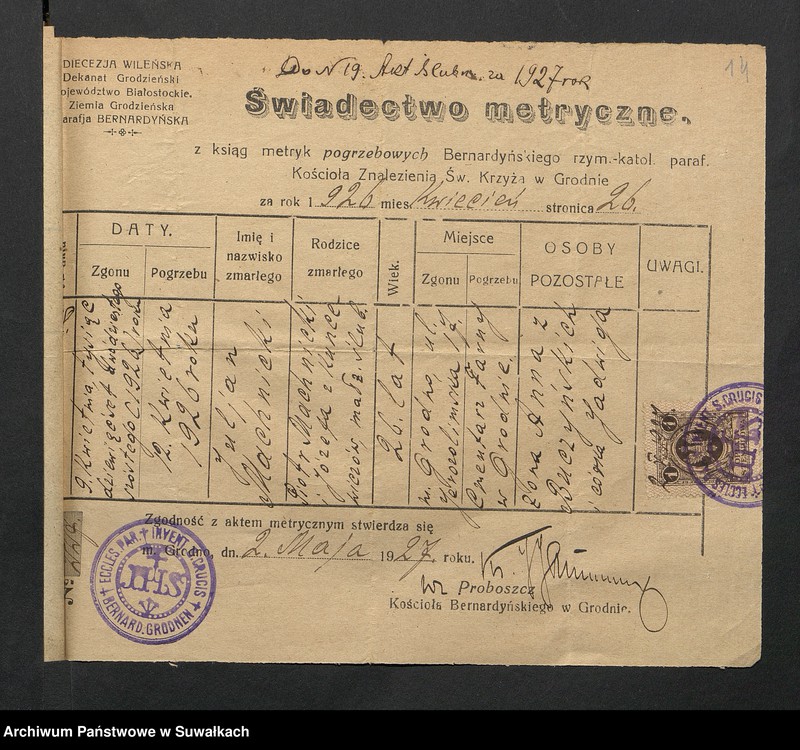 DIECEZJA WILEŃSKA
Dekanat Grodzieński
ojewództwo Białostockie.
Ziemia Grodzieńska
arafja BERNARDYŃSKA
Do N 19. Akt Ślubn. za 1927 rok
14
Świadectwo metryczne.
z ksiąg metryk pogrzebowych Bernardyńskiego rzym.-katol. paraf.
Kościoła Znalezienia Św. Krzyża w Grodnie
za rok 1926 mies. kwiecień stronica 26.
DATY.
Zgonu
Pogrzebu
Imię i
nazwisko
zmarłego
Rodzice
zmarłego
Wiek.
Miejsce
Zgonu
Pogrzebu
OSOBY
POZOSTAŁE
UWAGI.
9. kwietnia, tysiąc
dziewięćset dwudziestego
szóstego (1926) roku
12. kwietnia
1926 roku
Juljan
Machnicki
Piotr Machnicki
i Józefa z
małż. ślub.
26 lat
m. Grodno, ul.
Jerozolimska 14
Cmentarz Farny
w Grodnie.
Żona Anna z
Buczyńskich
i córka Jadwiga
1
1
Zgodność z aktem metrycznym stwierdza się
m. Grodno, dn. 2. Maja 1927. roku.
Ks.
wz Proboszcz
Kościoła Bernardyńskiego w Grodnie.
№
ECCLES. PAR. INVENT. S. CRUCIS
BERNARD. GRODNEN
IHS
INVENT. S. CRUCIS
ECCLES
Archiwum Państwowe w Suwałkach